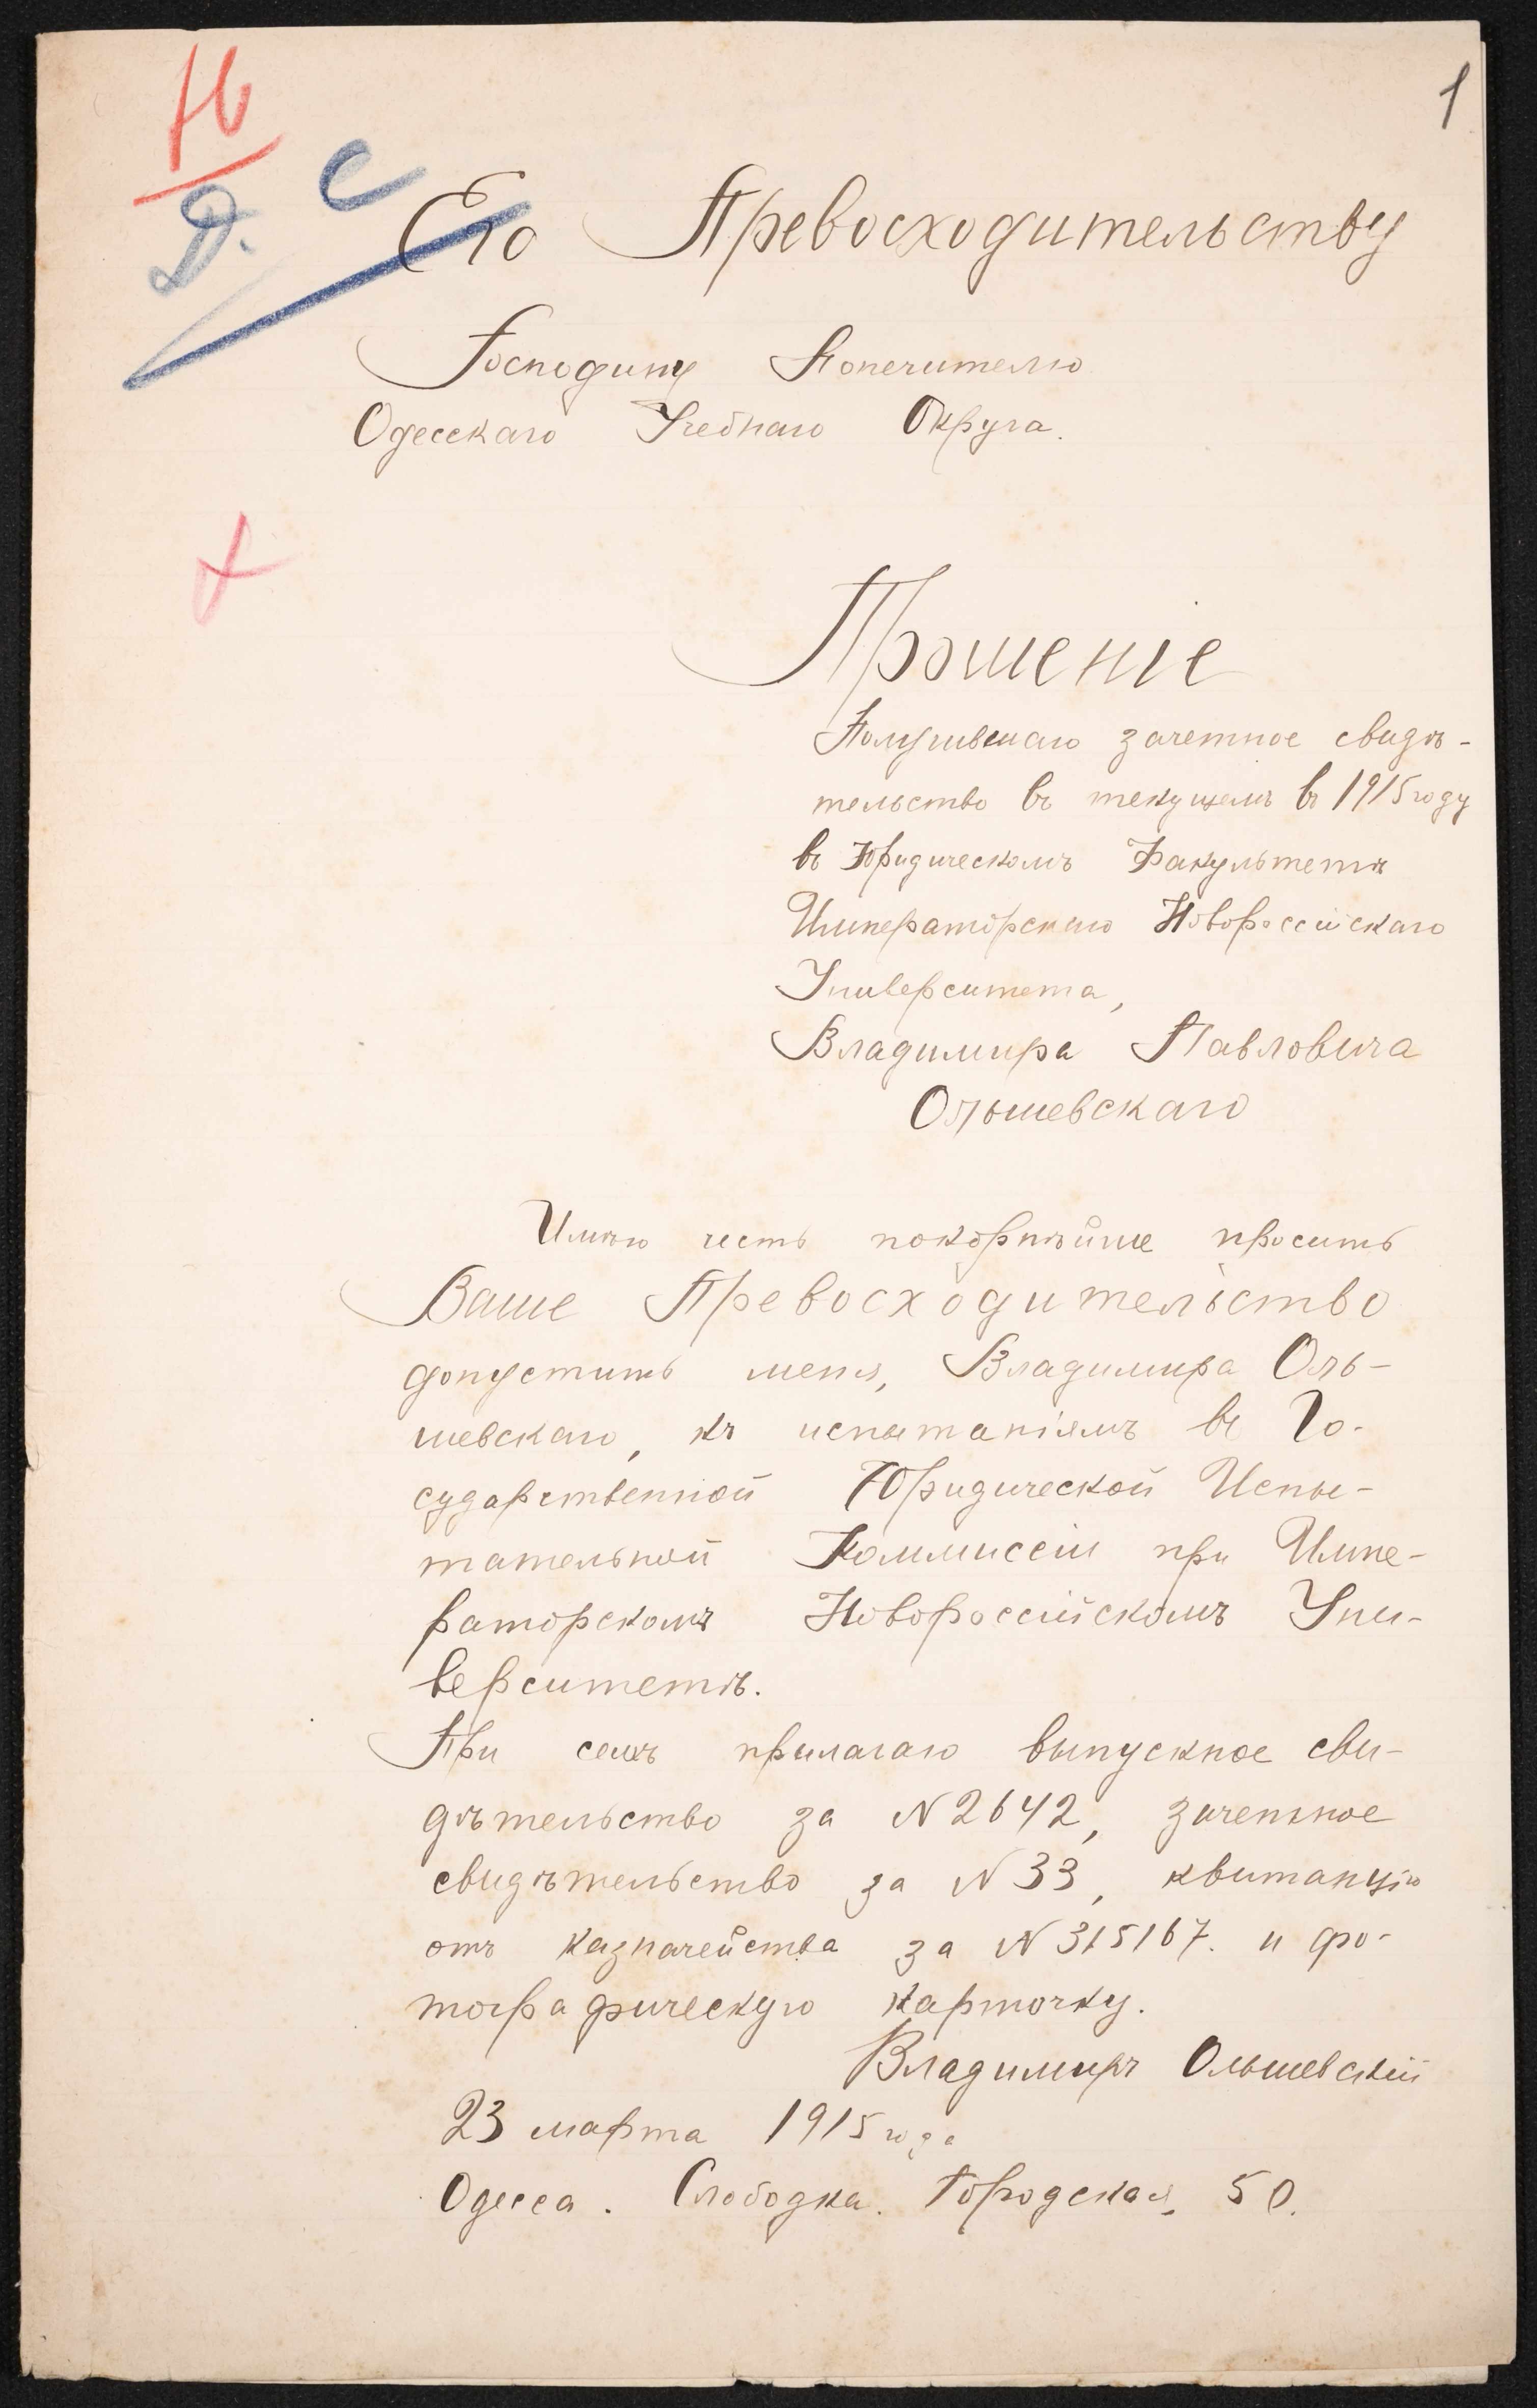 1
Н
Д.
С
Его Превосходительству
Господину Попечителю
Одесскаго Учебнаго Округа.
Прошеніе
Получившаго зачетное свидѣ-
тельство въ текущемъ въ 1915 году
въ Юридическомъ Факультетѣ
Императорскаго Новороссійскаго
Университета,
Владимира Павловича
Ольшевскаго
Имѣю честь покорнѣйше просить
Ваше Превосходительство
допустить меня, Владимира Оль-
шевскаго, къ испытаніямъ въ Го-
сударственной Юридической Испы-
тательной Коммиссіи при Импе-
раторскомъ Новороссійскомъ Уни-
верситетѣ.
При семъ прилагаю выпускное сви-
дѣтельство за N 2642, зачетное
свидѣтельство за N 33, квитанцію
отъ казначейства за N 315167. и фо-
тографическую карточку.
Владимиръ Ольшевскій
23 марта 1915 года
Одесса. Слободка. Городская, 50.